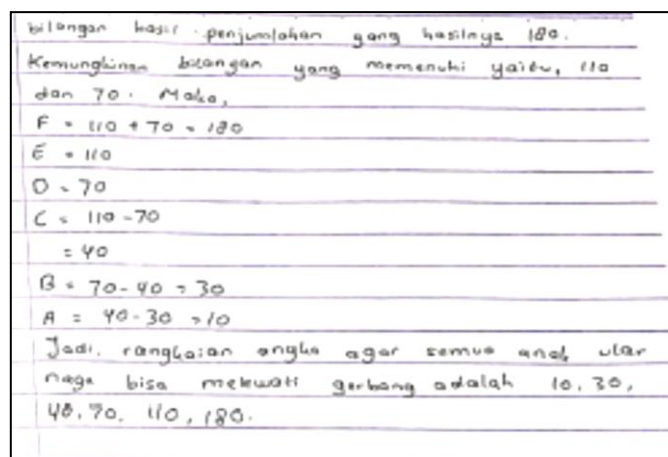 bilangan hasil penjumlahan yang hasilnya 180.
Kemungkinan bilangan yang memenuhi yaitu, 110
dan 70. Maka,
F = 110 + 70 = 180
E = 110
D = 70
C = 110 - 70
= 40
B = 70 - 40 = 30
A = 40 - 30 = 10
Jadi, rangkaian angka agar semua anak ular
naga bisa melewati gerbang adalah 10, 30,
40, 70, 110, 180.